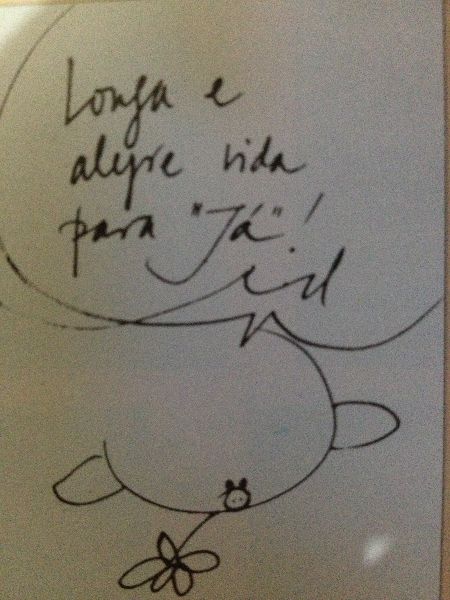 Longa e
alegre vida
para "Já"!